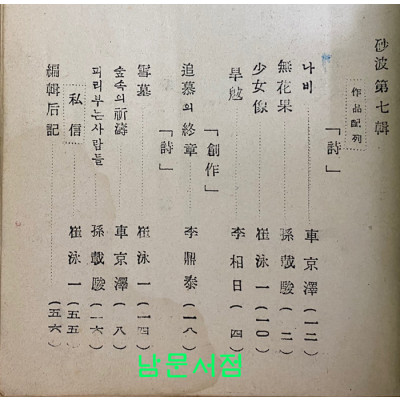 砂波 第七輯
作品配列
「詩」
나비 車京澤 (一二)
無花果 孫載駿 (二)
少女像 崔泳一 (一〇)
旱魃 李相日 (四)
「創作」
追慕의 終章 李鼎泰 (一八)
「詩」
雪墓 崔泳一 (一四)
숲속의 祈禱 車京澤 (八)
피리부는사람들 孫載駿 (一六)
私信 崔泳一 (五五)
編輯后記 (五六)
남문서점